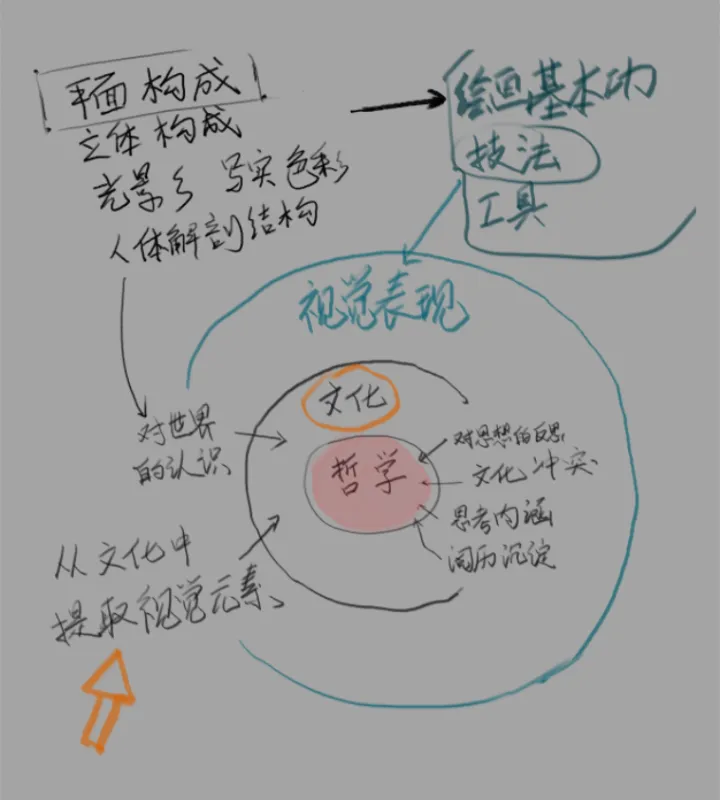 平面构成
立体构成
光影 写实色彩
人体解剖结构
绘画基本功
技法
工具
视觉表现
文化
哲学
对世界
的认识
对思想的反思
文化冲突
思考内涵
阅历沉淀
从文化中
提取视觉元素